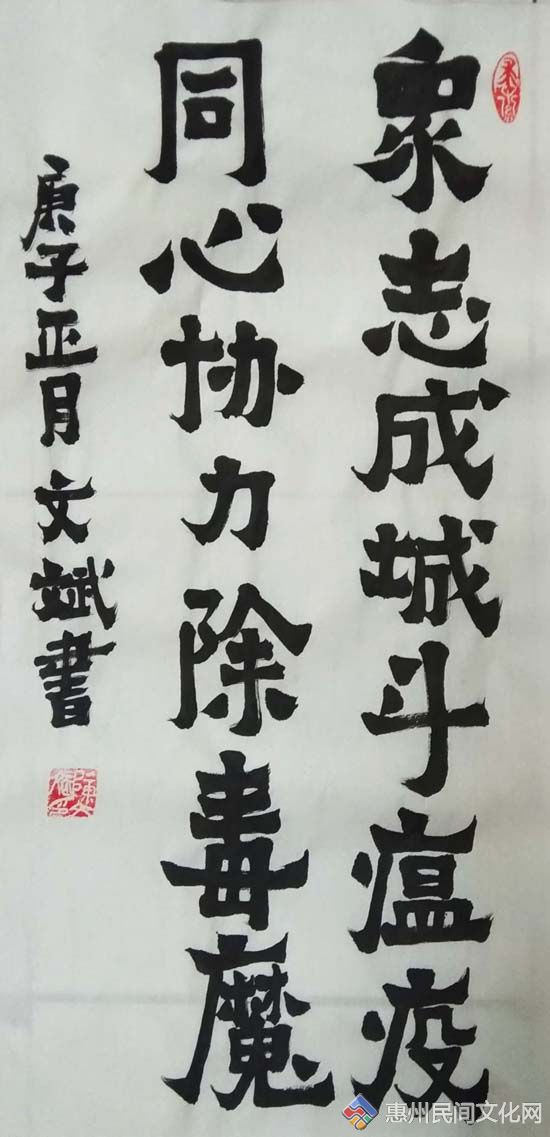 眾志成城斗瘟疫
同心协力除毒魔
庚子正月文斌書
惠州民间文化网